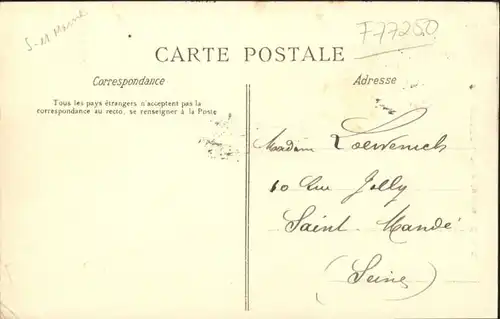 S-et Marne
F77250
CARTE POSTALE
Correspondance
Adresse
Tous les pays étrangers n'acceptent pas la
correspondance au recto, se renseigner à la Poste
Madame Loewenich
10 Rue Jolly
Saint Mandé
(Seine)